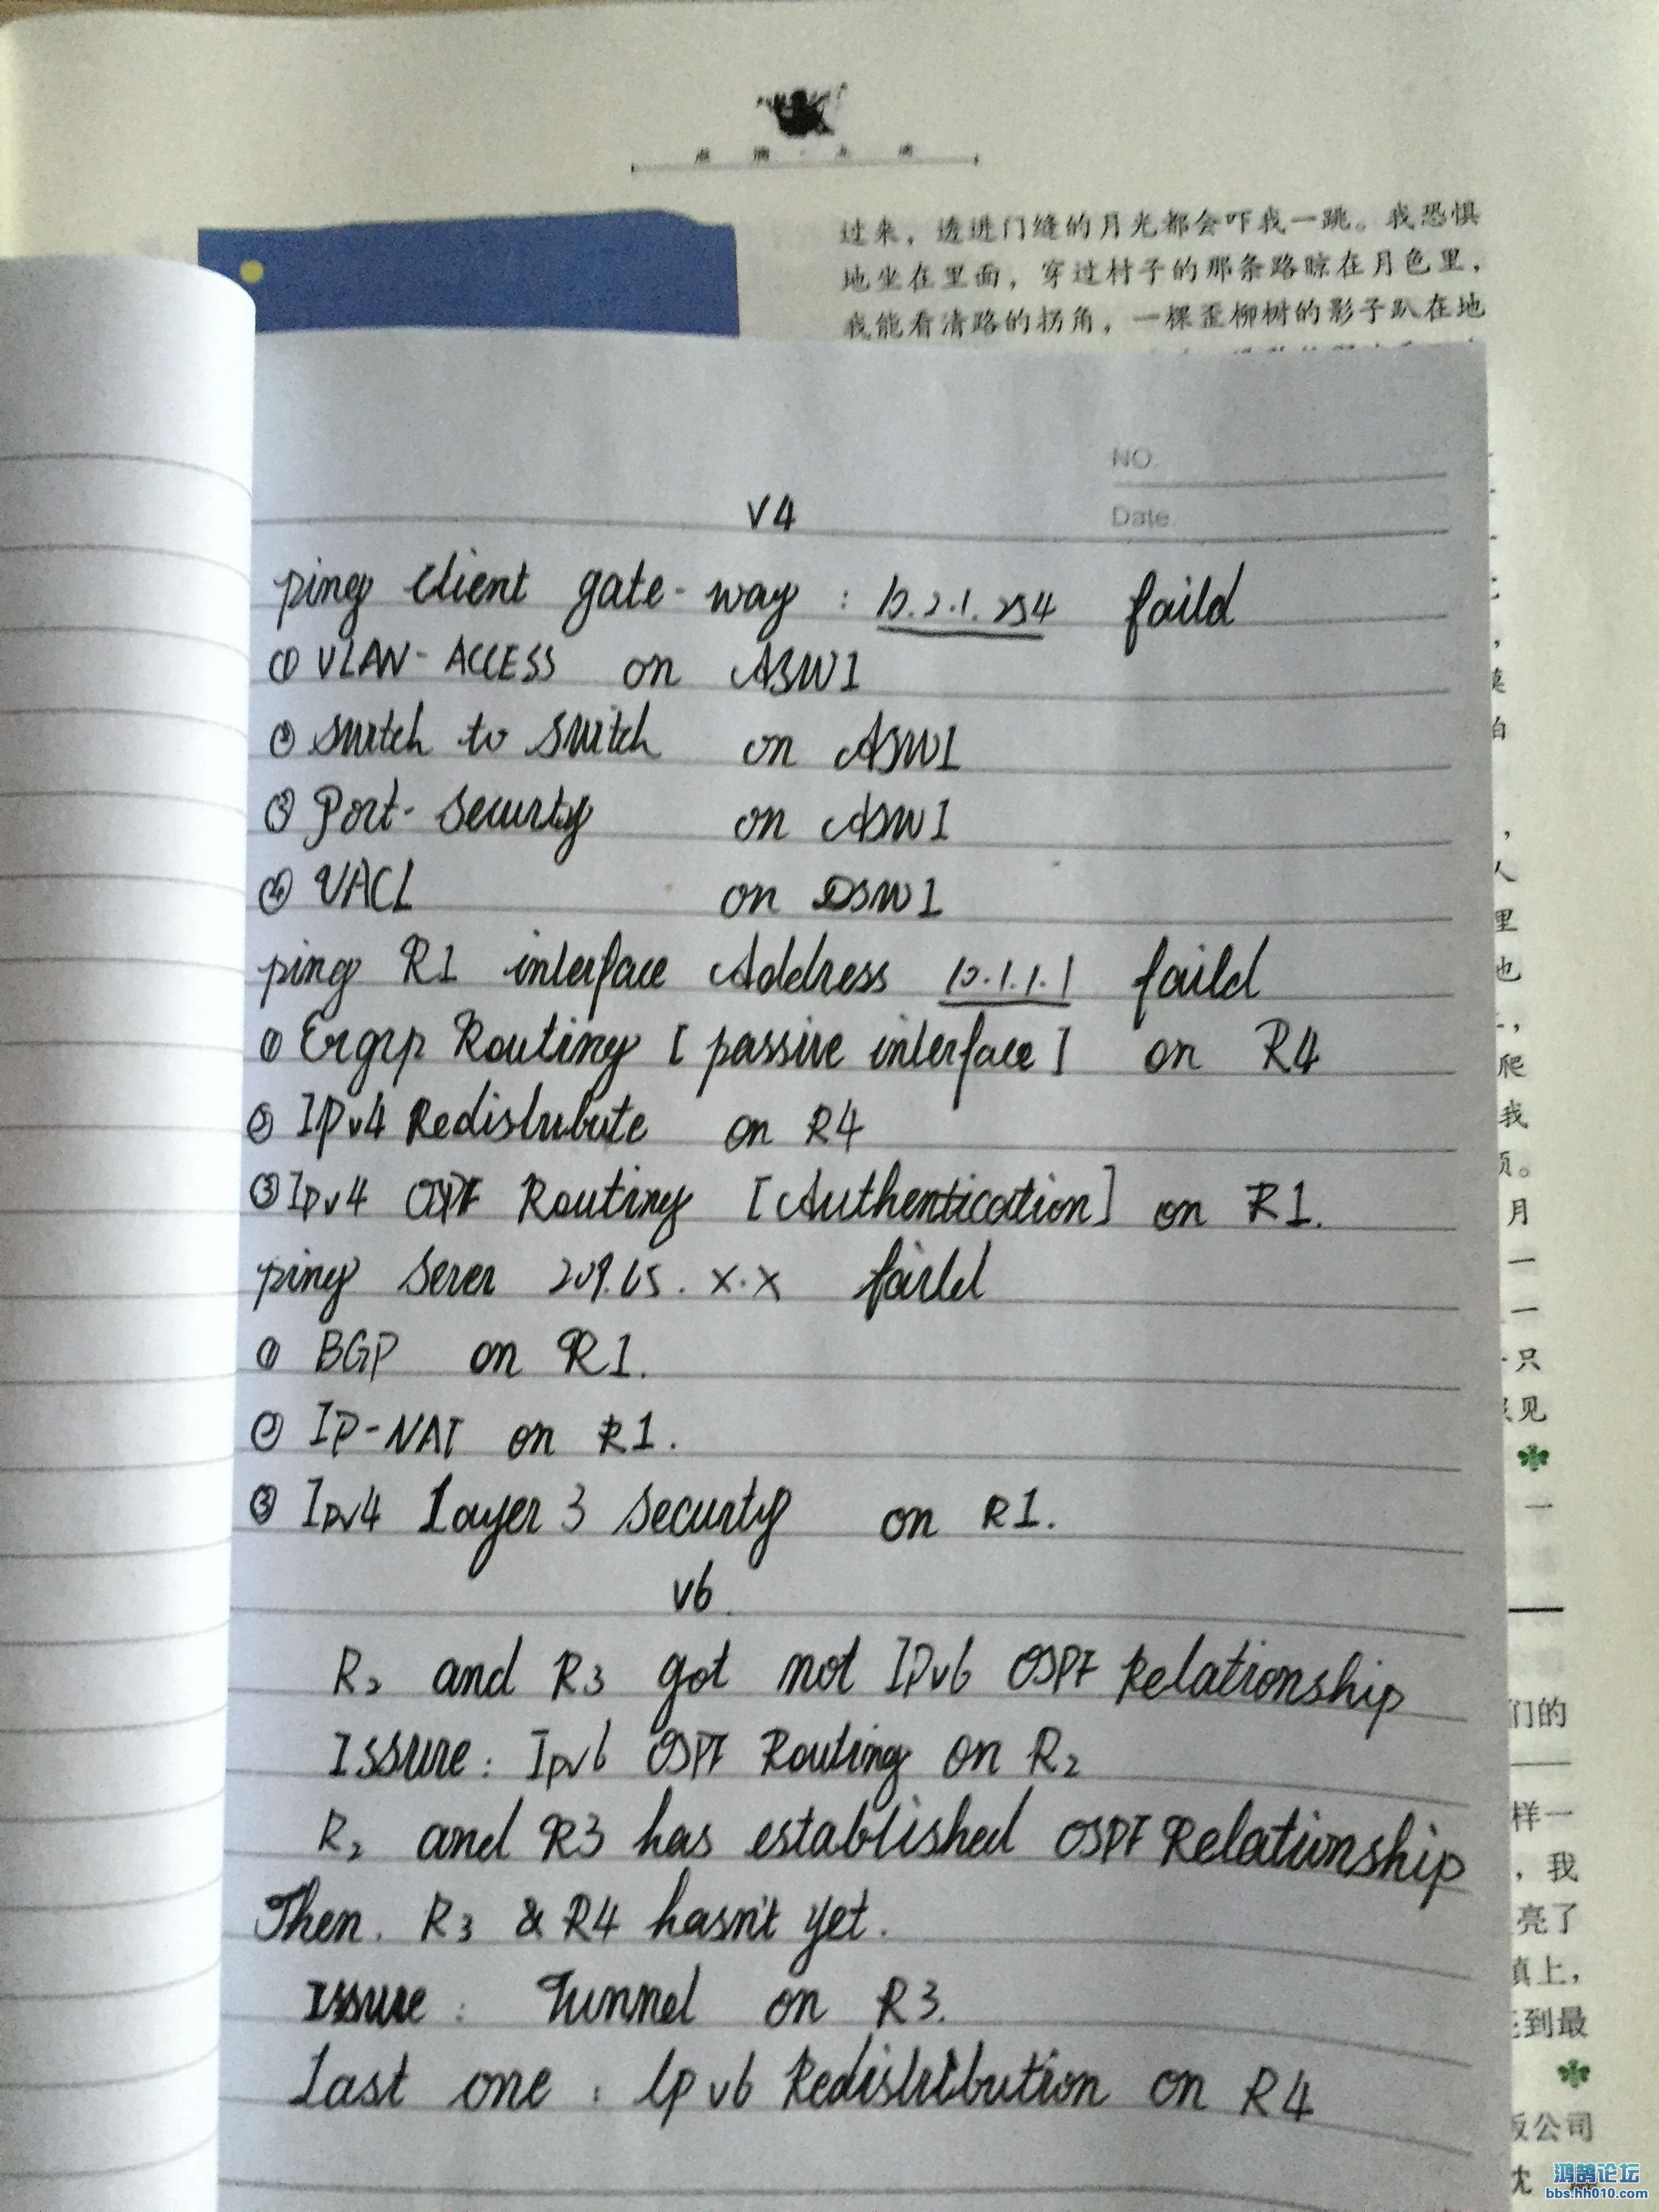 过来，透进门缝的月光都会吓我一跳。我恐惧
地坐在里面，穿过村子的那条路晾在月色里，
我能看清路的拐角，一棵歪柳树的影子趴在地
NO.
Date.
V4
ping client gate-way : 10.2.1.254 faild
① VLAN-ACCESS on ASW1
② switch to switch on ASW1
③ Port-security on ASW1
④ VACL on DSW1
ping R1 interface Address 10.1.1.1 faild
① Eigrp Routing [passive interface] on R4
② IPv4 Redistribute on R4
③ IPv4 OSPF Routing [Authentication] on R1.
ping Serer 209.65.x.x faild
① BGP on R1.
② IP-NAT on R1.
③ IPv4 Layer 3 security on R1.
v6.
R2 and R3 got not IPv6 OSPF Relationship
Issure: Ipv6 OSPF Routing on R2
R2 and R3 has established OSPF Relationship
Then. R3 & R4 hasn't yet.
Issure: Tunnel on R3.
Last one: Ipv6 Redistribution on R4
人
里
也
爬
我
月
一
一
只
见
一
们的
样一
，我
亮了
上，
到最
公司
沈
鸿鹄论坛
bbs.hh010.com